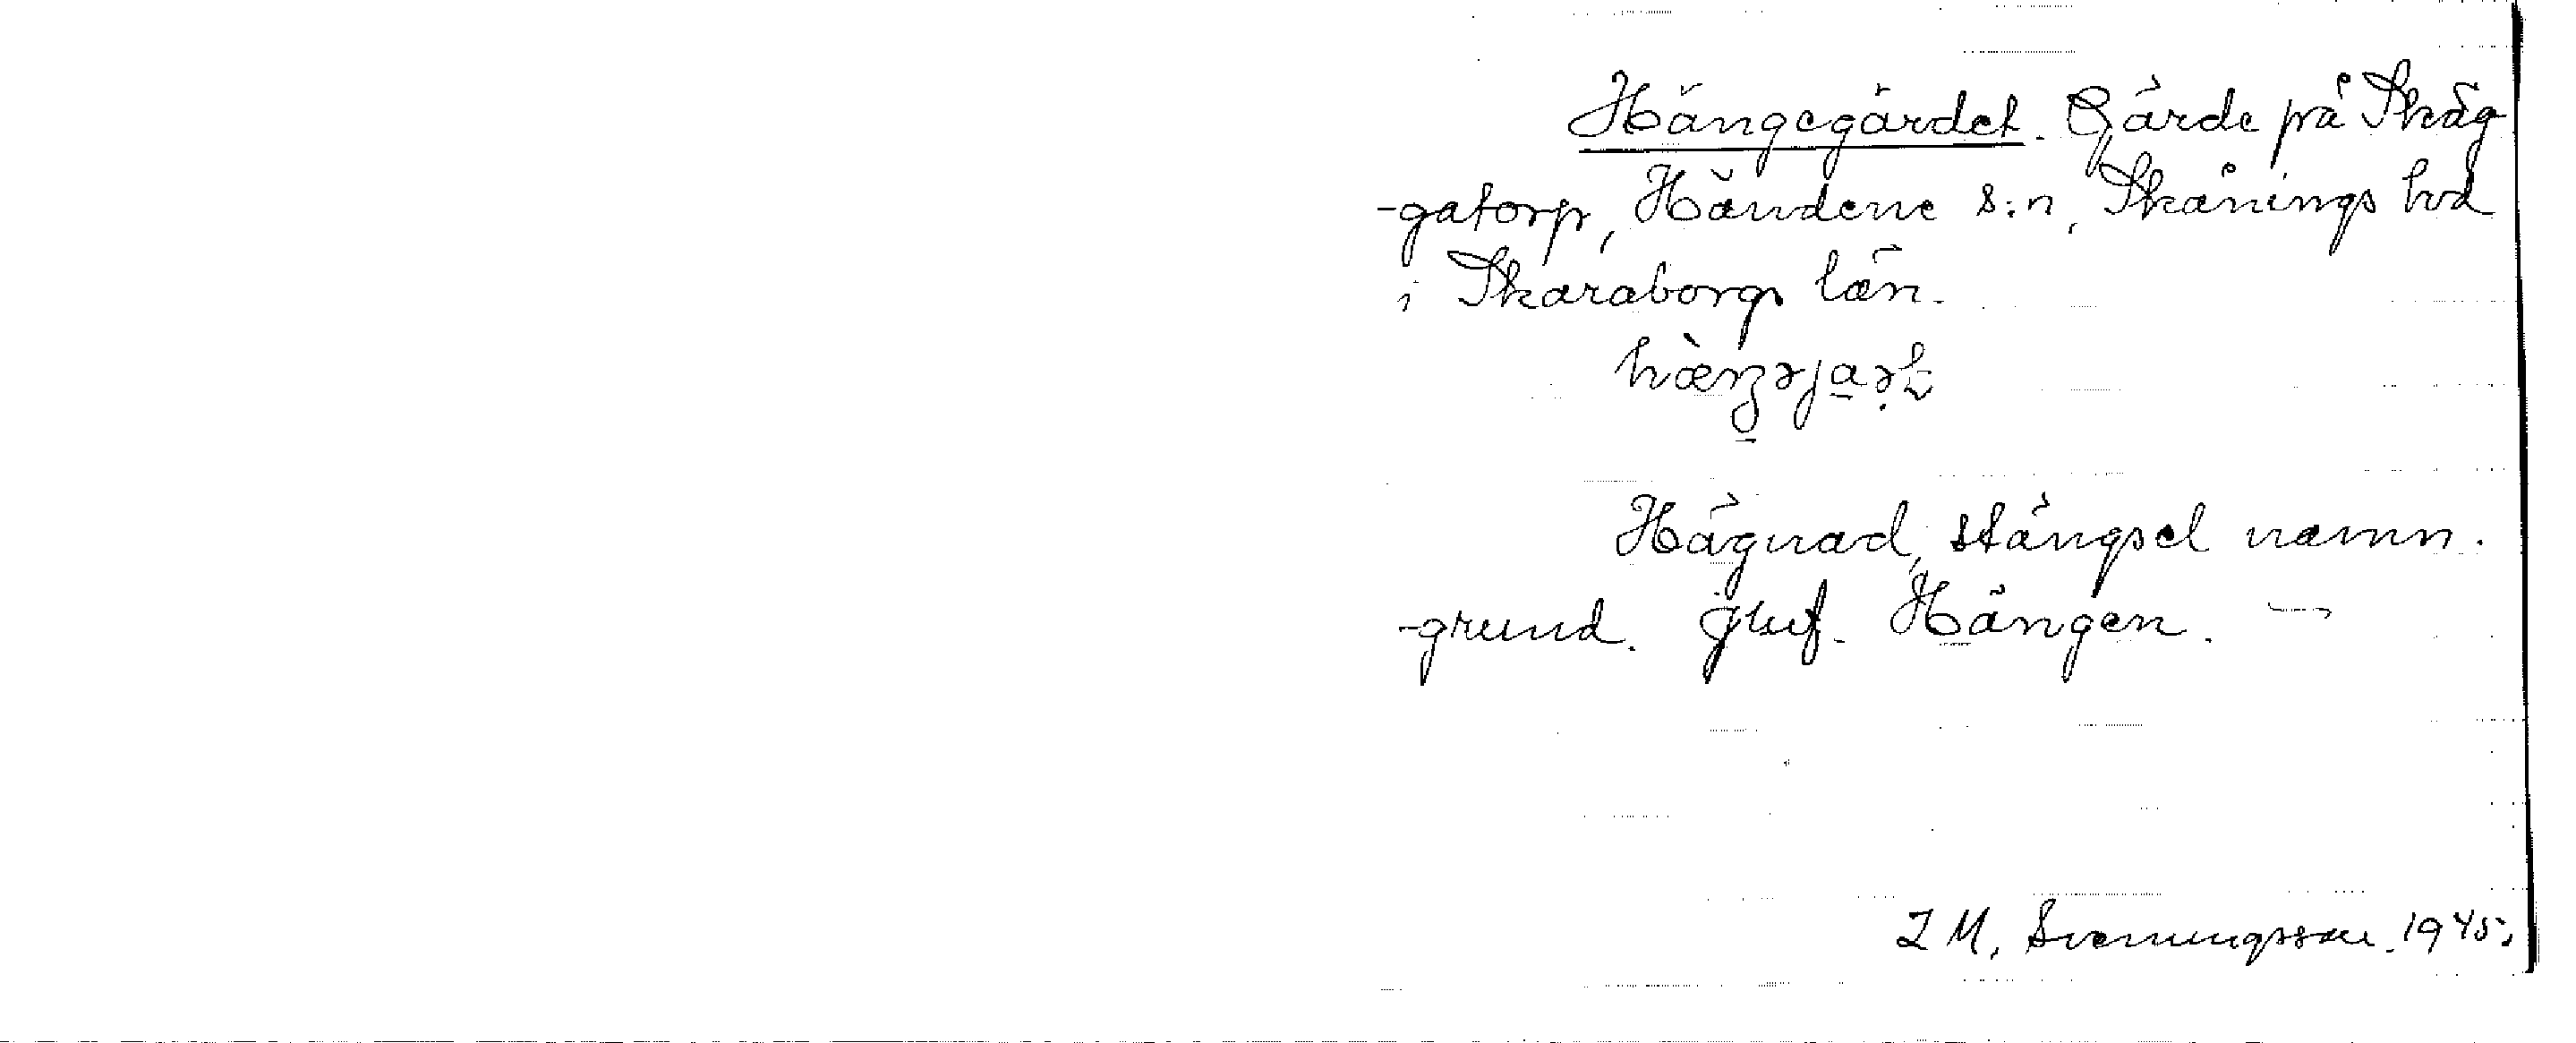 Hängegärdet. Gärde på Skäg
-gatorp, Händene s:n, Skånings hd
i Skaraborgs län.
Hägnad, stängsel namn.
-grund. Jmf. Hängen.
I M. Svenungsson 1945.